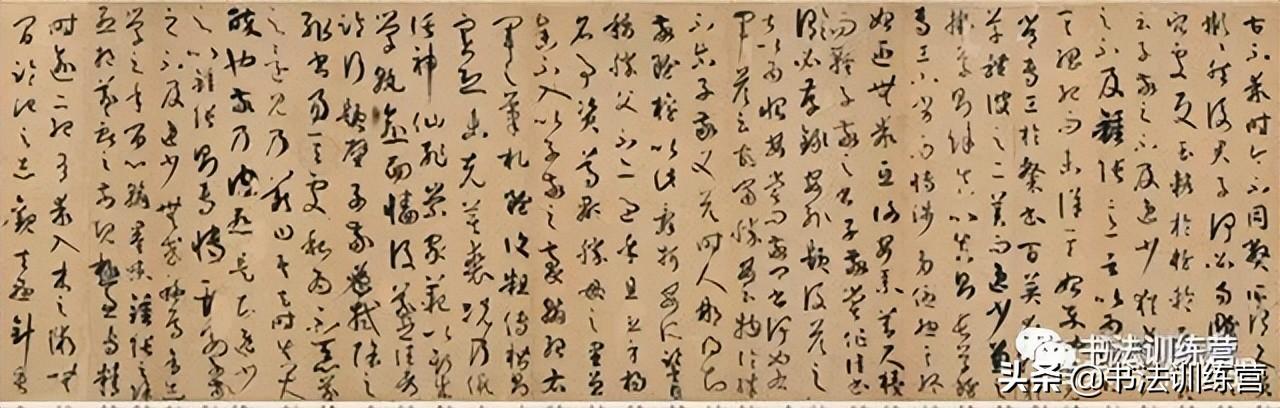 古不乖時今不同弊所謂文質
彬彬然後君子何必易雕宮於
穴處反玉輅於椎輪者乎又
云子敬之不及逸少猶逸少
之不及鍾張意者以為評得
其綱紀而未詳其始卒也且元
常專工於隸書百英尤精於
草體彼之二美而逸少兼之
擬草則餘真比真則長草雖
專工小劣而博涉多優摠其終
始匪無乖互謝安素善尺牘
而輕子敬之書子敬嘗作佳書
與之謂必存錄安輒題後答之
甚以為恨安嘗問敬卿書何如右
軍答云故當勝安云物論殊
不爾子敬又答時人那得知
敬雖權以此辭折安所鑒自
稱勝父不亦過乎且立身揚
名事資尊顯勝母之里曾
參不入以子敬之豪翰紹右
軍之筆札雖復粗傳楷則
實恐未克箕裘況乃假
託神仙恥崇家範以斯成
學孰愈面牆後羲之往都
臨行題壁子敬密拭除之
輒書易其處私為不惡羲
之還見乃歎曰吾去時真大
醉也敬乃內慚是知逸少
之比鍾張則專博斯別子敬
之不及逸少無或疑焉余志
學之年留心翰墨味鍾張之餘
烈挹羲獻之前規極慮專精
時逾二紀有乖入木之術無
間臨池之志觀夫懸針垂
书法训练营
头条@书法训练营